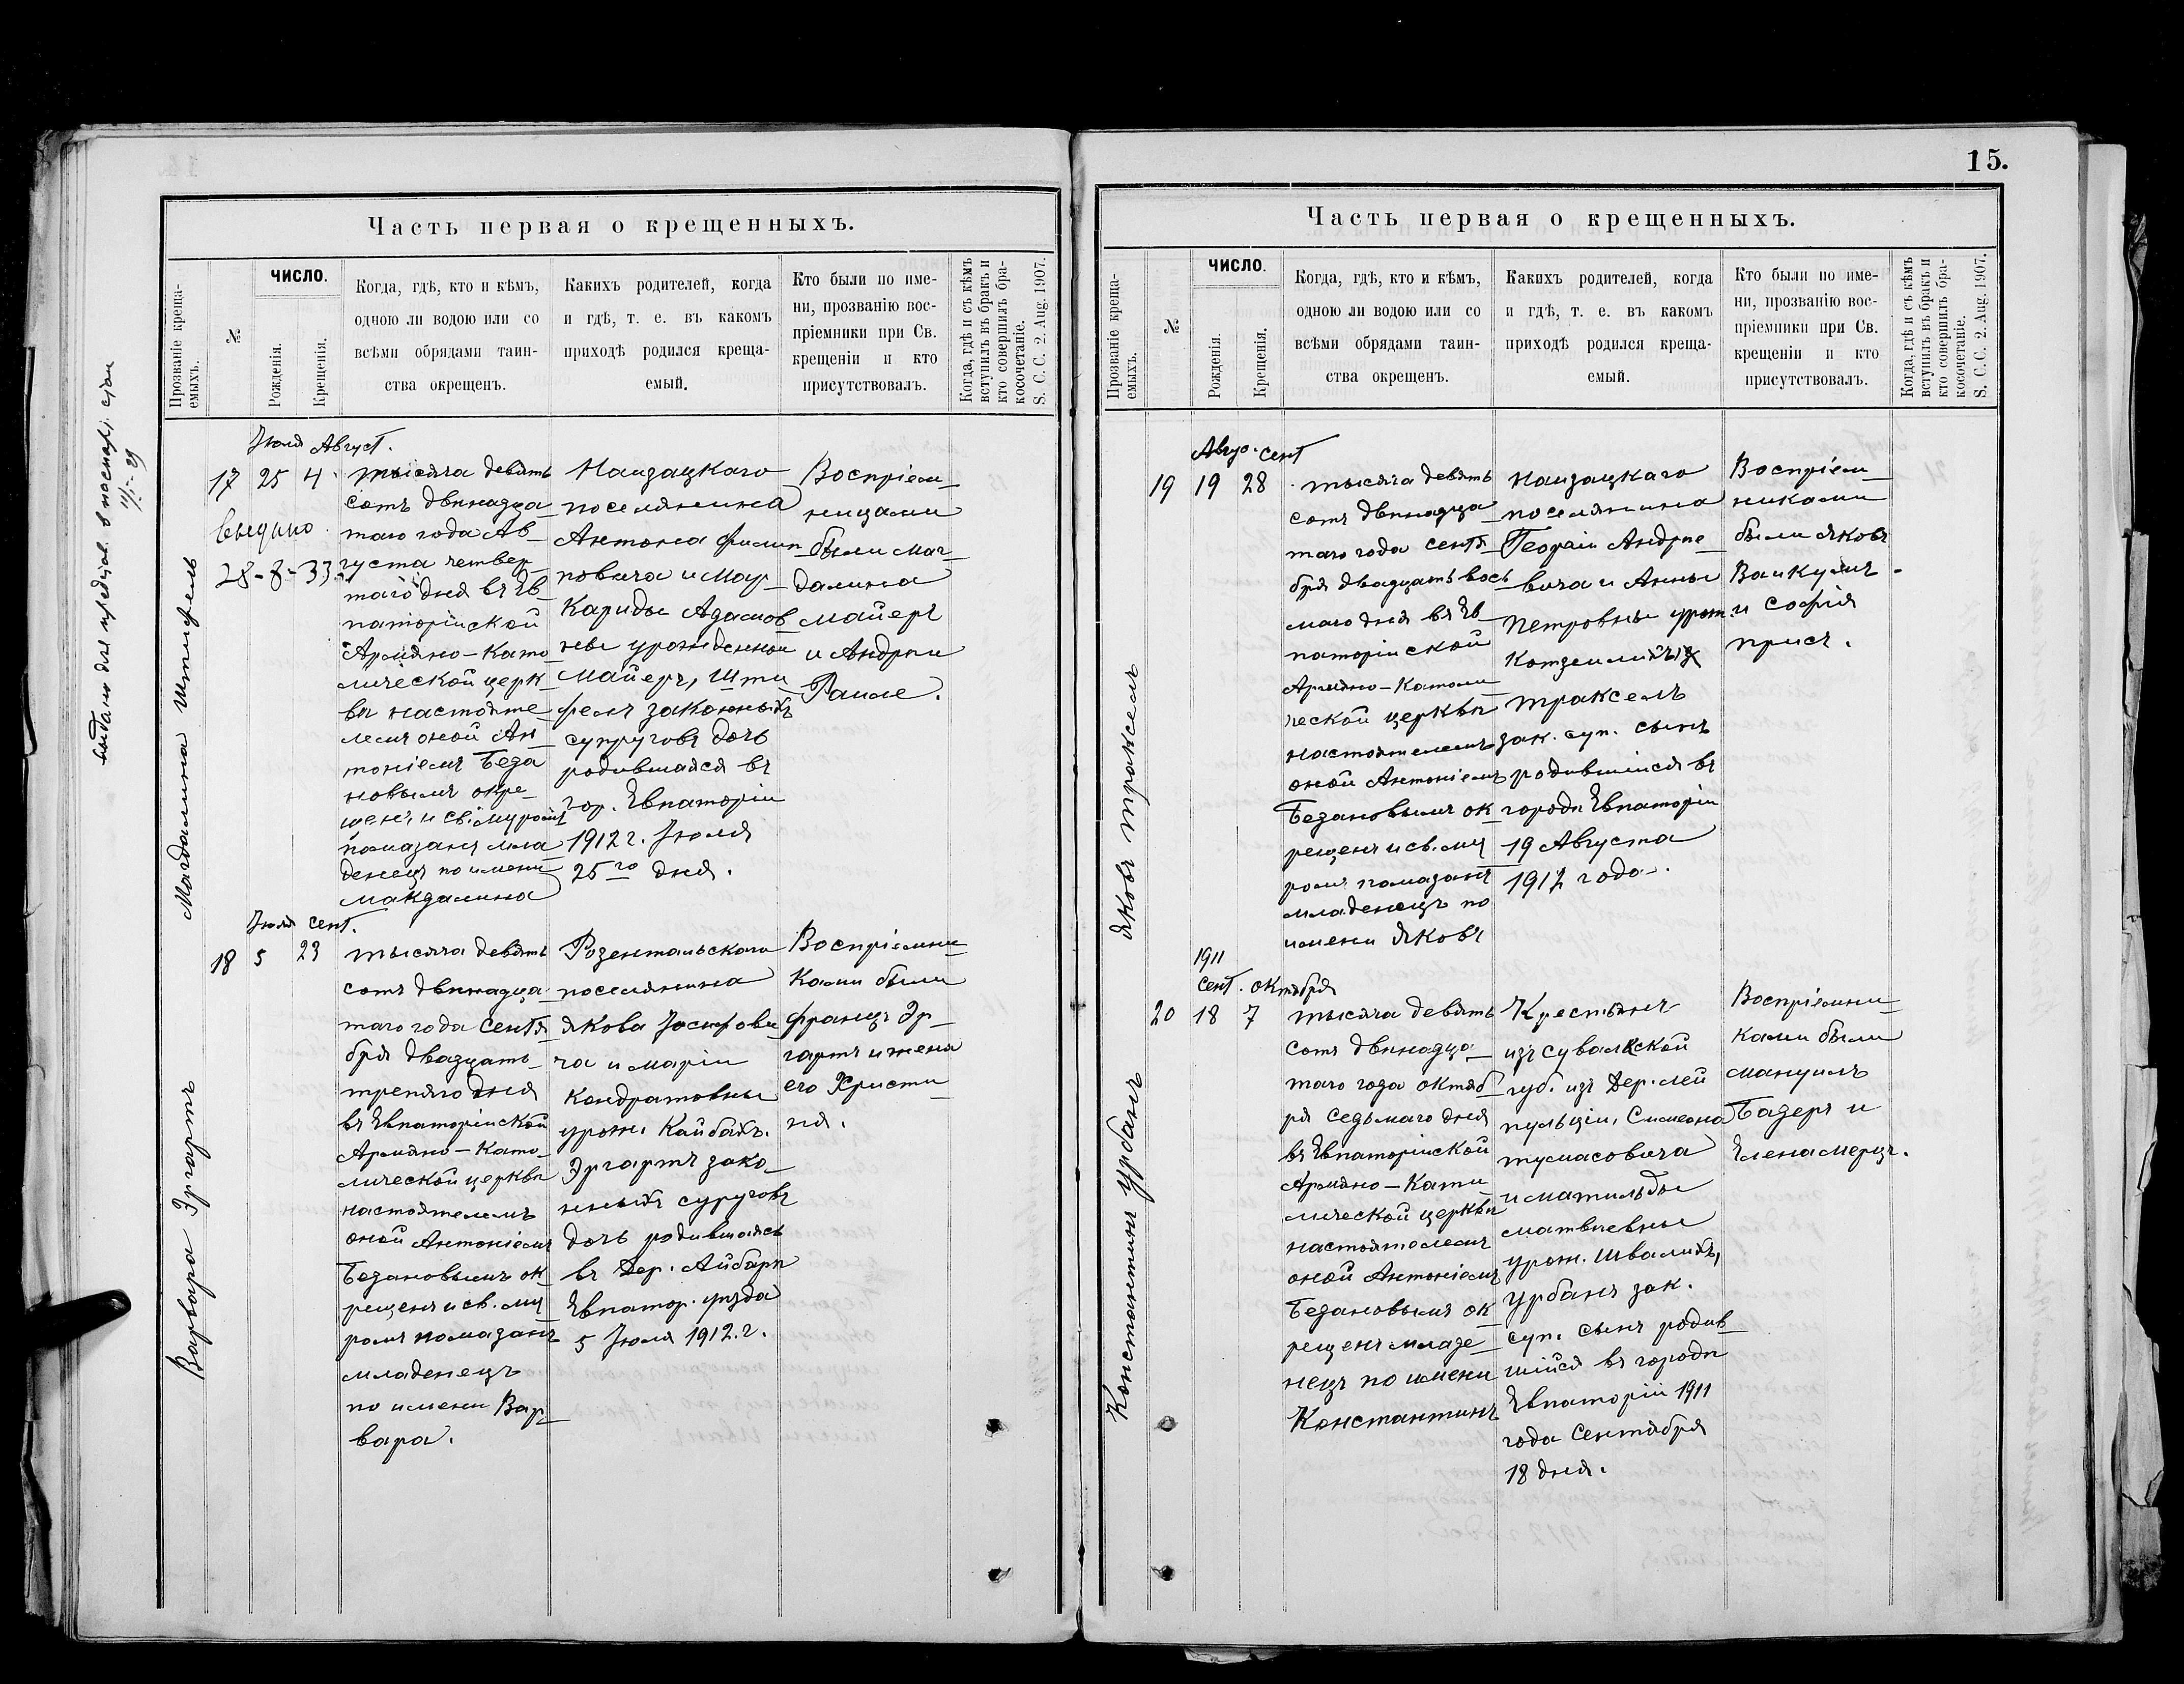 15.
Часть первая о крещенныхъ.
Прозваніе креща-
емыхъ.
№
ЧИСЛО.
Рожденія.
Крещенія.
Когда, гдѣ, кто и кѣмъ,
одною ли водою или со
всѣми обрядами таин-
ства окрещенъ.
Какихъ родителей, когда
и гдѣ, т. е. въ какомъ
приходѣ родился креща-
емый.
Кто были по име-
ни, прозванію вос-
пріемники при Св.
крещеніи и кто
присутствовалъ.
Когда, гдѣ и съ кѣмъ
вступилъ въ бракъ и
кто совершилъ бра-
косочетаніе.
S. C. C. 2. Aug. 1907.
Магдалина Штифель
Іюля Август.
17 25 4
28-8-33
тысяча девять
сотъ двѣнадца
таго года Ав-
густа четвер-
таго дня въ Ев
паторійской
Армяно-Като
лической церк-
ви настояте
лемъ оной Ан
тоніемъ Беза
новымъ окре-
щенъ и св. муромъ
помазанъ мла
денецъ по имени
Макдалина
поселянина
Антона Филип
повича и Мар
Адамов
ны урожденной
Майеръ, Шти
фель законныхъ
супруговъ дочь
родившаяся въ
гор. Евпаторіи
1912 г. Іюля
25го дня.
Воспріем
ницами
были Маг
далина
Майеръ
и Андрѣй
Варвара Эргартъ
Іюля сент.
18 5 23
тысяча девять
сотъ двѣнадца
таго года Сентя
бря двадцать
третяго дня
въ Евпаторійской
Армяно-Като
лической церкви
настоятелемъ
оной Антоніемъ
Безановымъ ок
рещенъ и св. му
ромъ помазанъ
младенецъ
по имени Вар
вара.
Розентальскаго
поселянина
Якова Іосифови
ча и Маріи
Кондратовны
урож. Кайбахъ.
Эргартъ зако
нныхъ суруговъ
дочь родившаясь
въ Дер. Айбары
Евпатор. уѣзда
5 Іюля 1912.г.
Воспріемни
ками были
Францъ Эр-
гартъ и жена
его Христи
ня.
Часть первая о крещенныхъ.
Прозваніе креща-
емыхъ.
№
ЧИСЛО.
Рожденія.
Крещенія.
Когда, гдѣ, кто и кѣмъ,
одною ли водою или со
всѣми обрядами таин-
ства окрещенъ.
Какихъ родителей, когда
и гдѣ, т. е. въ какомъ
приходѣ родился креща-
емый.
Кто были по име-
ни, прозванію вос-
пріемники при Св.
крещеніи и кто
присутствовалъ.
Когда, гдѣ и съ кѣмъ
вступилъ въ бракъ и
кто совершилъ бра-
косочетаніе.
S. C. C. 2. Aug. 1907.
Яковъ Траксель
Авгус. сент
19 19 28
тысяча девять
сотъ двѣнадца
таго года сентя
бря двадцать вось
маго дня въ Ев
паторійской
Армяно-Католи
ческой церкви
настоятелемъ
оной Антоніемъ
Безановымъ ок
рещенъ и св. му
ромъ помазанъ
младенецъ по
имени Яковъ
поселянина
Георгія Андрѣе
вича и Анны
Петровны урож.
Траксель
зак. суп. сынъ
родившійся въ
городѣ Евпаторіи
19 Августа
1912 года.
Воспріем
никами
были Яковъ
и Софія
Константинъ Урбанъ
1911
Сент. октября
20 18 7
тысяча девять
сотъ двѣнадца
таго года октяб
ря седьмаго дня
въ Евпаторійской
Армяно-Като
лической церкви
настоятелемъ
оной Антоніемъ
Безановымъ ок
рещенъ младе
нецъ по имени
Константинъ
Крестьянъ
изъ Сувалкской
губ. изъ Дер. Лей
пульціи, Симеона
Тумасовича
и Матильды
Матвѣевны
урож. Швалихъ,
Урбанъ зак.
суп. сынъ родив
шійся въ городѣ
Евпаторіи 1911
года Сентября
18 дня.
Воспріемни
ками были
Мануилъ
Базеръ и
Елена Мерцъ.